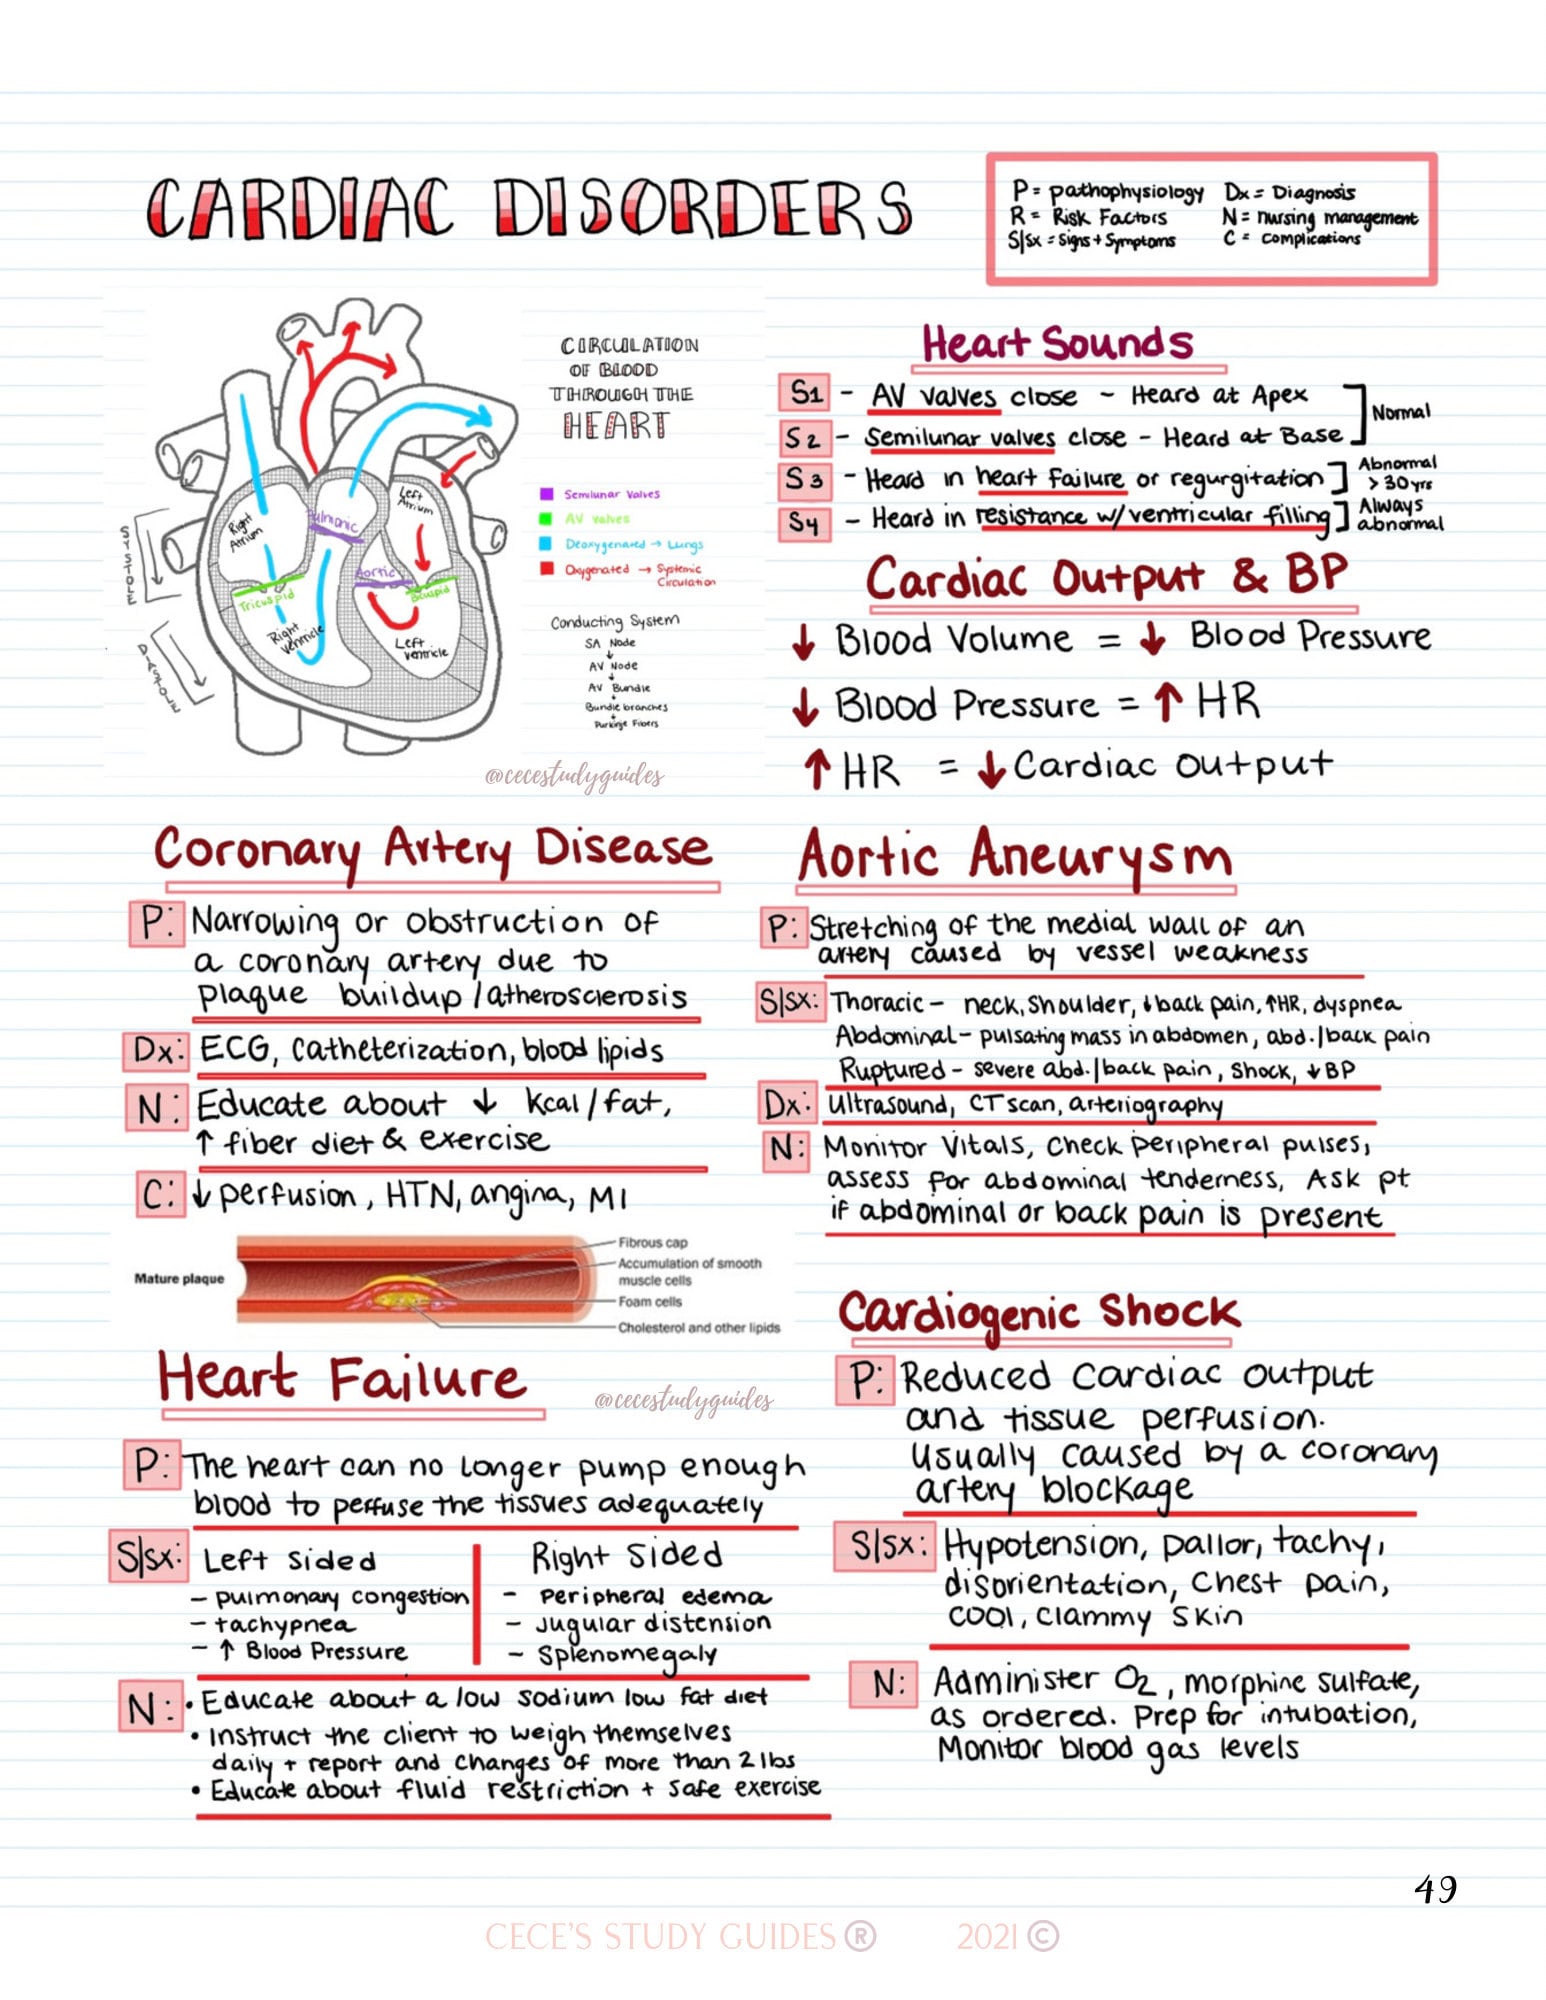 CARDIAC DISORDERS
P = pathophysiology Dx = Diagnosis
R = Risk Factors N = nursing management
S|Sx = Signs + Symptoms C = complications
CIRCULATION
OF BLOOD
THROUGH THE
HEART
Semilunar Valves
AV valves
Deoxygenated → Lungs
Oxygenated → Systemic
Circulation
Conducting System
SA Node
↓
AV Node
↓
AV Bundle
↓
Bundle branches
↓
Purkinje Fibers
SYSTOLE
DIASTOLE
Right
Atrium
Pulmonic
Left
Atrium
Aortic
Tricuspid
Bicuspid
Right
ventricle
Left
ventricle
@cecestudyguides
Heart Sounds
S1 - AV valves close - Heard at Apex
S2 - Semilunar valves close - Heard at Base
Normal
S3 - Heard in heart failure or regurgitation
Abnormal
> 30 yrs
S4 - Heard in resistance w/ ventricular filling
Always
abnormal
Cardiac Output & BP
↓ Blood Volume = ↓ Blood Pressure
↓ Blood Pressure = ↑ HR
↑ HR = ↓ Cardiac output
Coronary Artery Disease
P: Narrowing or obstruction of
a coronary artery due to
plaque buildup / atherosclerosis
Dx: ECG, catheterization, blood lipids
N: Educate about ↓ kcal/fat,
↑ fiber diet & exercise
C: ↓ perfusion, HTN, angina, MI
Mature plaque
Fibrous cap
Accumulation of smooth
muscle cells
Foam cells
Cholesterol and other lipids
Aortic Aneurysm
P: Stretching of the medial wall of an
artery caused by vessel weakness
S|Sx: Thoracic - neck, shoulder, ↓ back pain, ↑HR, dyspnea
Abdominal - pulsating mass in abdomen, abd./back pain
Ruptured - severe abd./back pain, shock, ↓ BP
Dx: Ultrasound, CT scan, arteriography
N: Monitor vitals, check peripheral pulses,
assess for abdominal tenderness, Ask pt
if abdominal or back pain is present
Heart Failure
@cecestudyguides
P: The heart can no longer pump enough
blood to perfuse the tissues adequately
S|Sx: Left sided
- pulmonary congestion
- tachypnea
- ↑ Blood Pressure
Right sided
- Peripheral edema
- Jugular distension
- Splenomegaly
N: • Educate about a low sodium low fat diet
• Instruct the client to weigh themselves
daily + report and changes of more than 2 lbs
• Educate about fluid restriction + safe exercise
Cardiogenic Shock
P: Reduced cardiac output
and tissue perfusion.
Usually caused by a coronary
artery blockage
S|Sx: Hypotension, pallor, tachy,
disorientation, chest pain,
cool, clammy skin
N: Administer O2, morphine sulfate,
as ordered. Prep for intubation,
Monitor blood gas levels
49
CECE'S STUDY GUIDES ® 2021 ©